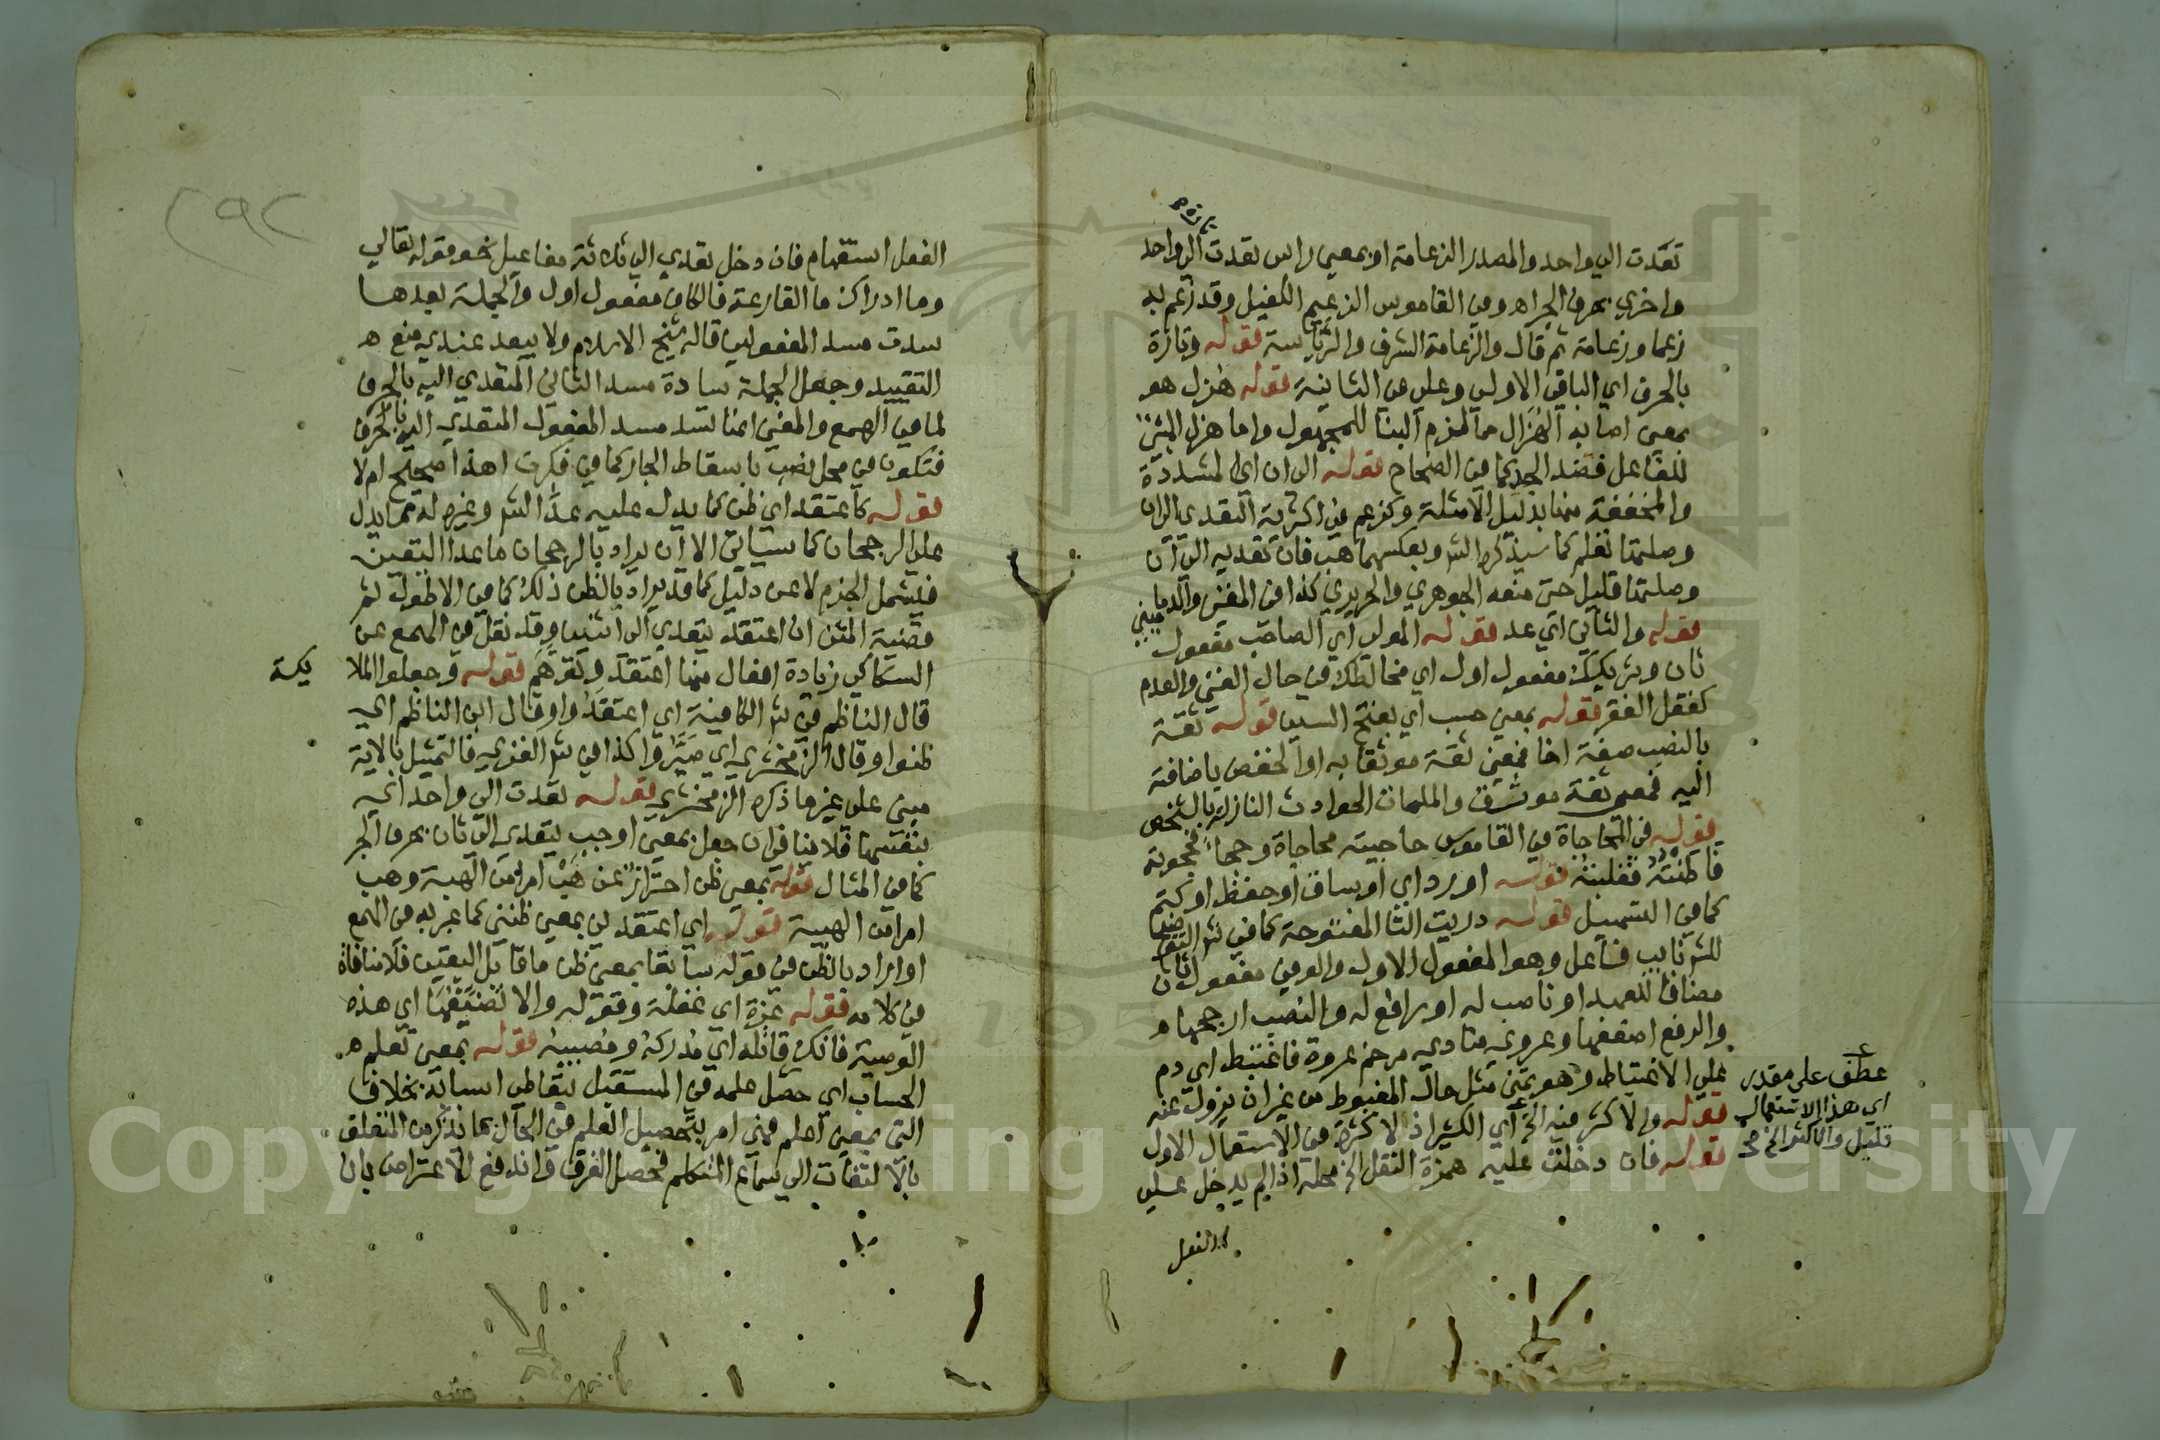 تارة
تعدت الى واحد والمصدر الزعامة او بمعنى راس تعدت الى واحد
واخرى بحرف الجر اه وفى القاموس الزعيم الكفيل وقد زعم به
زعما وزعامة ثم قال والزعامة الشرف والرياسة قوله وتارة
بالحرف اي الباقى الاولى وعلى فى الثانية قوله هزل هو
بمعنى اصابه الهزال مما لزم البنا للمجهول واما هزل المبنى
للفاعل فضد الجد كما فى الصحاح قوله الى ان اى المشددة
والمخففة منها بدليل الامثلة وكزعم فى اكثرية التعدى الى ان
وصلتها تعلم كما سيذكره الش وبعكسهما هب فان تعديه الى ان
وصلتها قليل حتى منعه الجوهري والحريري كذا فى المغنى والدماميني
قوله والثانى اي عد قوله المولى اي الصاحب مفعول
ثان وشريكك مفعول اول اي مخالطك فى حال الغنى والعدم
كقفل الفقر قوله بمعنى حسب اي بفتح السين قوله ثقة
بالنصب صفة اخا فمعنى ثقة موثقا به او الخفض باضافة
اليه فمعنى ثقة موثوق والملمات الحوادث النازلة بالشخص
قوله فى المحاجاة فى القاموس حاجيته محاجاة وحجاء فحجوته
فاطنته فغلبته قوله او رد اي او ساق او حفظ او كتم
كما فى التسهيل قوله دريت التا المفتوحة كما فى ش التوضيح
للش نايب فاعل وهو المفعول الاول والوفى مفعول ثان
مضافا للعهد او ناصب له او رافع له والنصب ارجحها
والرفع اضعفها وعرو منادى مرخم عروة فاغتبط اي دم
على الاغتباط وهو تمنى مثل حال المغبوط من غير ان يزول عنه
قوله والاكثر فيه الخ اي الكثير اذ لا كثرة فى الاستعمال الاول
قوله فان دخلت عليه همزة النقل الخ محله اذا لم يدخل على
الفعل
عطف على مقدر
اي هذا الاستعمال
قليل والاكثر الخ
٢٩٢
الفعل استفهام فان دخل تعدي الى ثلاثة مفاعيل نحو قوله تعالى
وما ادراك ما القارعة فالكاف مفعول اول والجملة بعدها
سدت مسد المفعولين قاله شيخ الاسلام ولا يبعد عندي منع
التقييد وجعل الجملة سادة مسد الثانى المتعدي اليه بالحرف
لما فى الهمع والمغنى انها تسد مسد المفعول المتعدي اليه بالحرف
فتكون فى محل نصب باسقاط الجار كما فى فكرت اهذا صحيح ام لا
قوله كاعتقد اي ظن كما يدل عليه عد الش وغيره له مما يدل
على الرجحان كما سياتى الا ان يراد بالرجحان ما عدا اليقين
فيشمل الجزم لا عن دليل كما قد يراد بالظن ذلك كما فى الاطول ثم
قضية المتن ان اعتقد يتعدي الى اثنين وقد نقل فى الهمع عن
السكاكي زيادة افعال منها اعتقد وتوهم قوله وجعلوا الملا
يكة
قال الناظم فى ش الكافية اي اعتقدوا وقال ابن الناظم اي
ظنوا وقال الزمخشري اي صيروا كذا فى ش الغزي فالتمثيل بالاية
مبنى على غير ما ذكره الزمخشري قوله تعدت الى واحد اي
بنفسها فلا ينافى ان جعل بمعنى اوجب يتعدي الى ثان بحرف الجر
كما فى المثال قوله بمعنى ظن احترازا عن هب امرا من الهبة وهب
امرا من الهيبة قوله اي اعتقدنى بمعنى ظننى كما عبر به فى الهمع
او اراد بالظن فى قوله سابقا بمعنى ظن ما قابل اليقين فلا منافاة
فى كلامه قوله غرة اي غفلة وقوله والا تضيعها اي هذه
الوصية فانك قاتله اي مدركه ومصيبه قوله بمعنى تعلم
الحساب اي حصل علمه فى المستقبل بتعاطى اسبابه بخلاف
التى بمعنى اعلم فهي امر بتحصيل العلم فى الحال بما يذكر من المتعلق
بالالتفات الى سماع المتكلم فحصل الفرق واندفع الاعتراض بان
Copyright © King Saud University